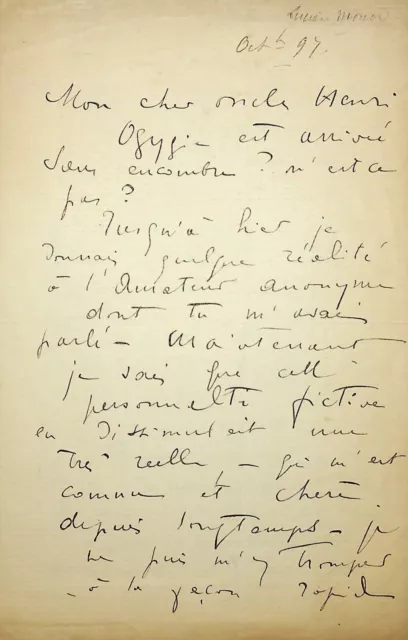 Lucien Monod
Octb 97.
Mon cher oncle Henri
Ogygie est arrivée
sans encombre ? n'est ce
pas ?
Jusqu'à hier je
donnais quelque réalité
à l'Amateur anonyme
dont tu m'avais
parlé – Maintenant
je sais que cette
personnalité fictive
en dissimulait une
très réelle, – qui m'est
connue et chère
depuis longtemps – je
ne puis m'y tromper
– à la façon rapide